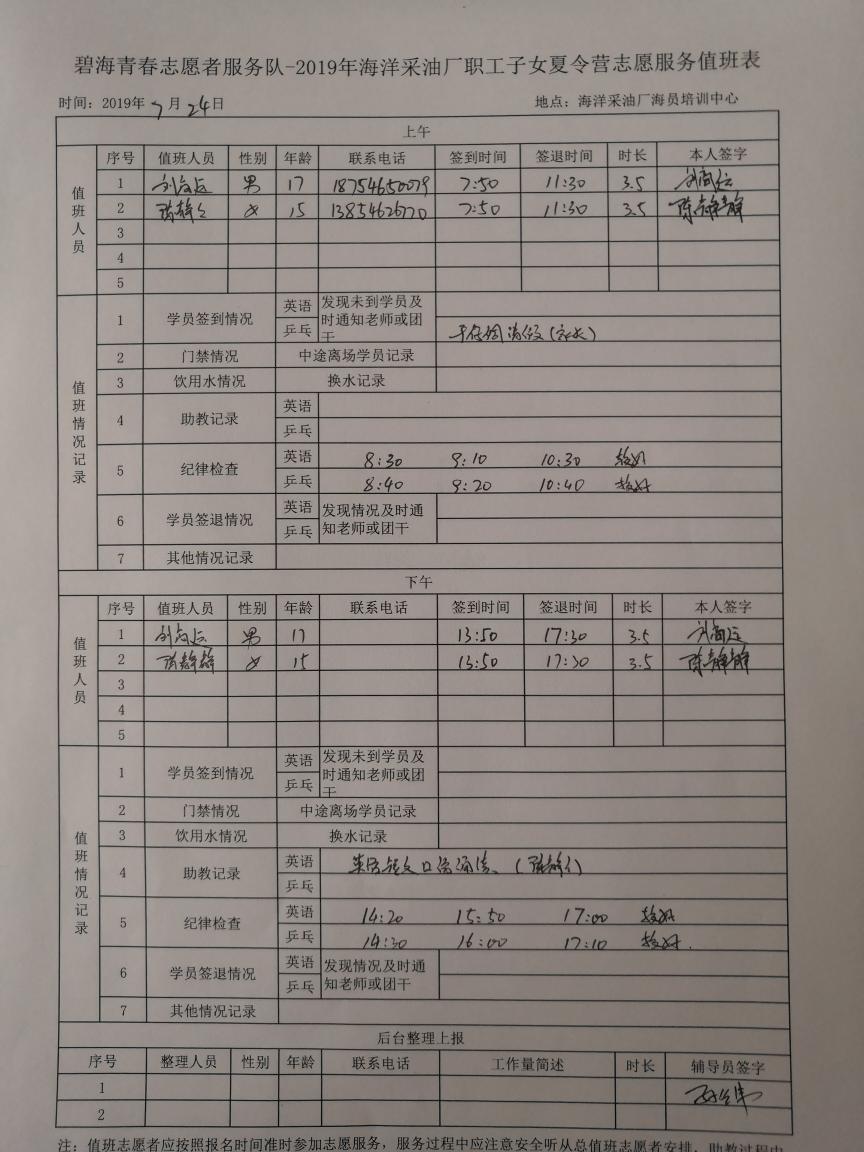 碧海青春志愿者服务队-2019年海洋采油厂职工子女夏令营志愿服务值班表
时间：2019年7月24日 地点：海洋采油厂海员培训中心
上午
值班人员
序号 值班人员 性别 年龄 联系电话 签到时间 签退时间 时长 本人签字
1 男 17 18754650079 7:50 11:30 3.5
2 女 15 1385462670 7:50 11:30 3.5 陈静静
3
4
5
值班情况记录
1 学员签到情况 英语 乒乓 发现未到学员及时通知老师或团干 请假(家长)
2 门禁情况 中途离场学员记录
3 饮用水情况 换水记录
4 助教记录 英语
乒乓
5 纪律检查 英语 8:30 9:10 10:30 较好
乒乓 8:40 9:20 10:40 较好
6 学员签退情况 英语 乒乓 发现情况及时通知老师或团干
7 其他情况记录
下午
值班人员
序号 值班人员 性别 年龄 联系电话 签到时间 签退时间 时长 本人签字
1 男 17 13:50 17:30 3.5
2 陈静静 女 15 13:50 17:30 3.5 陈静静
3
4
5
值班情况记录
1 学员签到情况 英语 乒乓 发现未到学员及时通知老师或团干
2 门禁情况 中途离场学员记录
3 饮用水情况 换水记录
4 助教记录 英语 英语
乒乓
5 纪律检查 英语 14:20 15:50 17:00 较好
乒乓 14:30 16:00 17:10 较好.
6 学员签退情况 英语 乒乓 发现情况及时通知老师或团干
7 其他情况记录
后台整理上报
序号 整理人员 性别 年龄 联系电话 工作量简述 时长 辅导员签字
1
2
注：值班志愿者应按照报名时间准时参加志愿服务，服务过程中应注意安全听从总值班志愿者安排，助教过程中